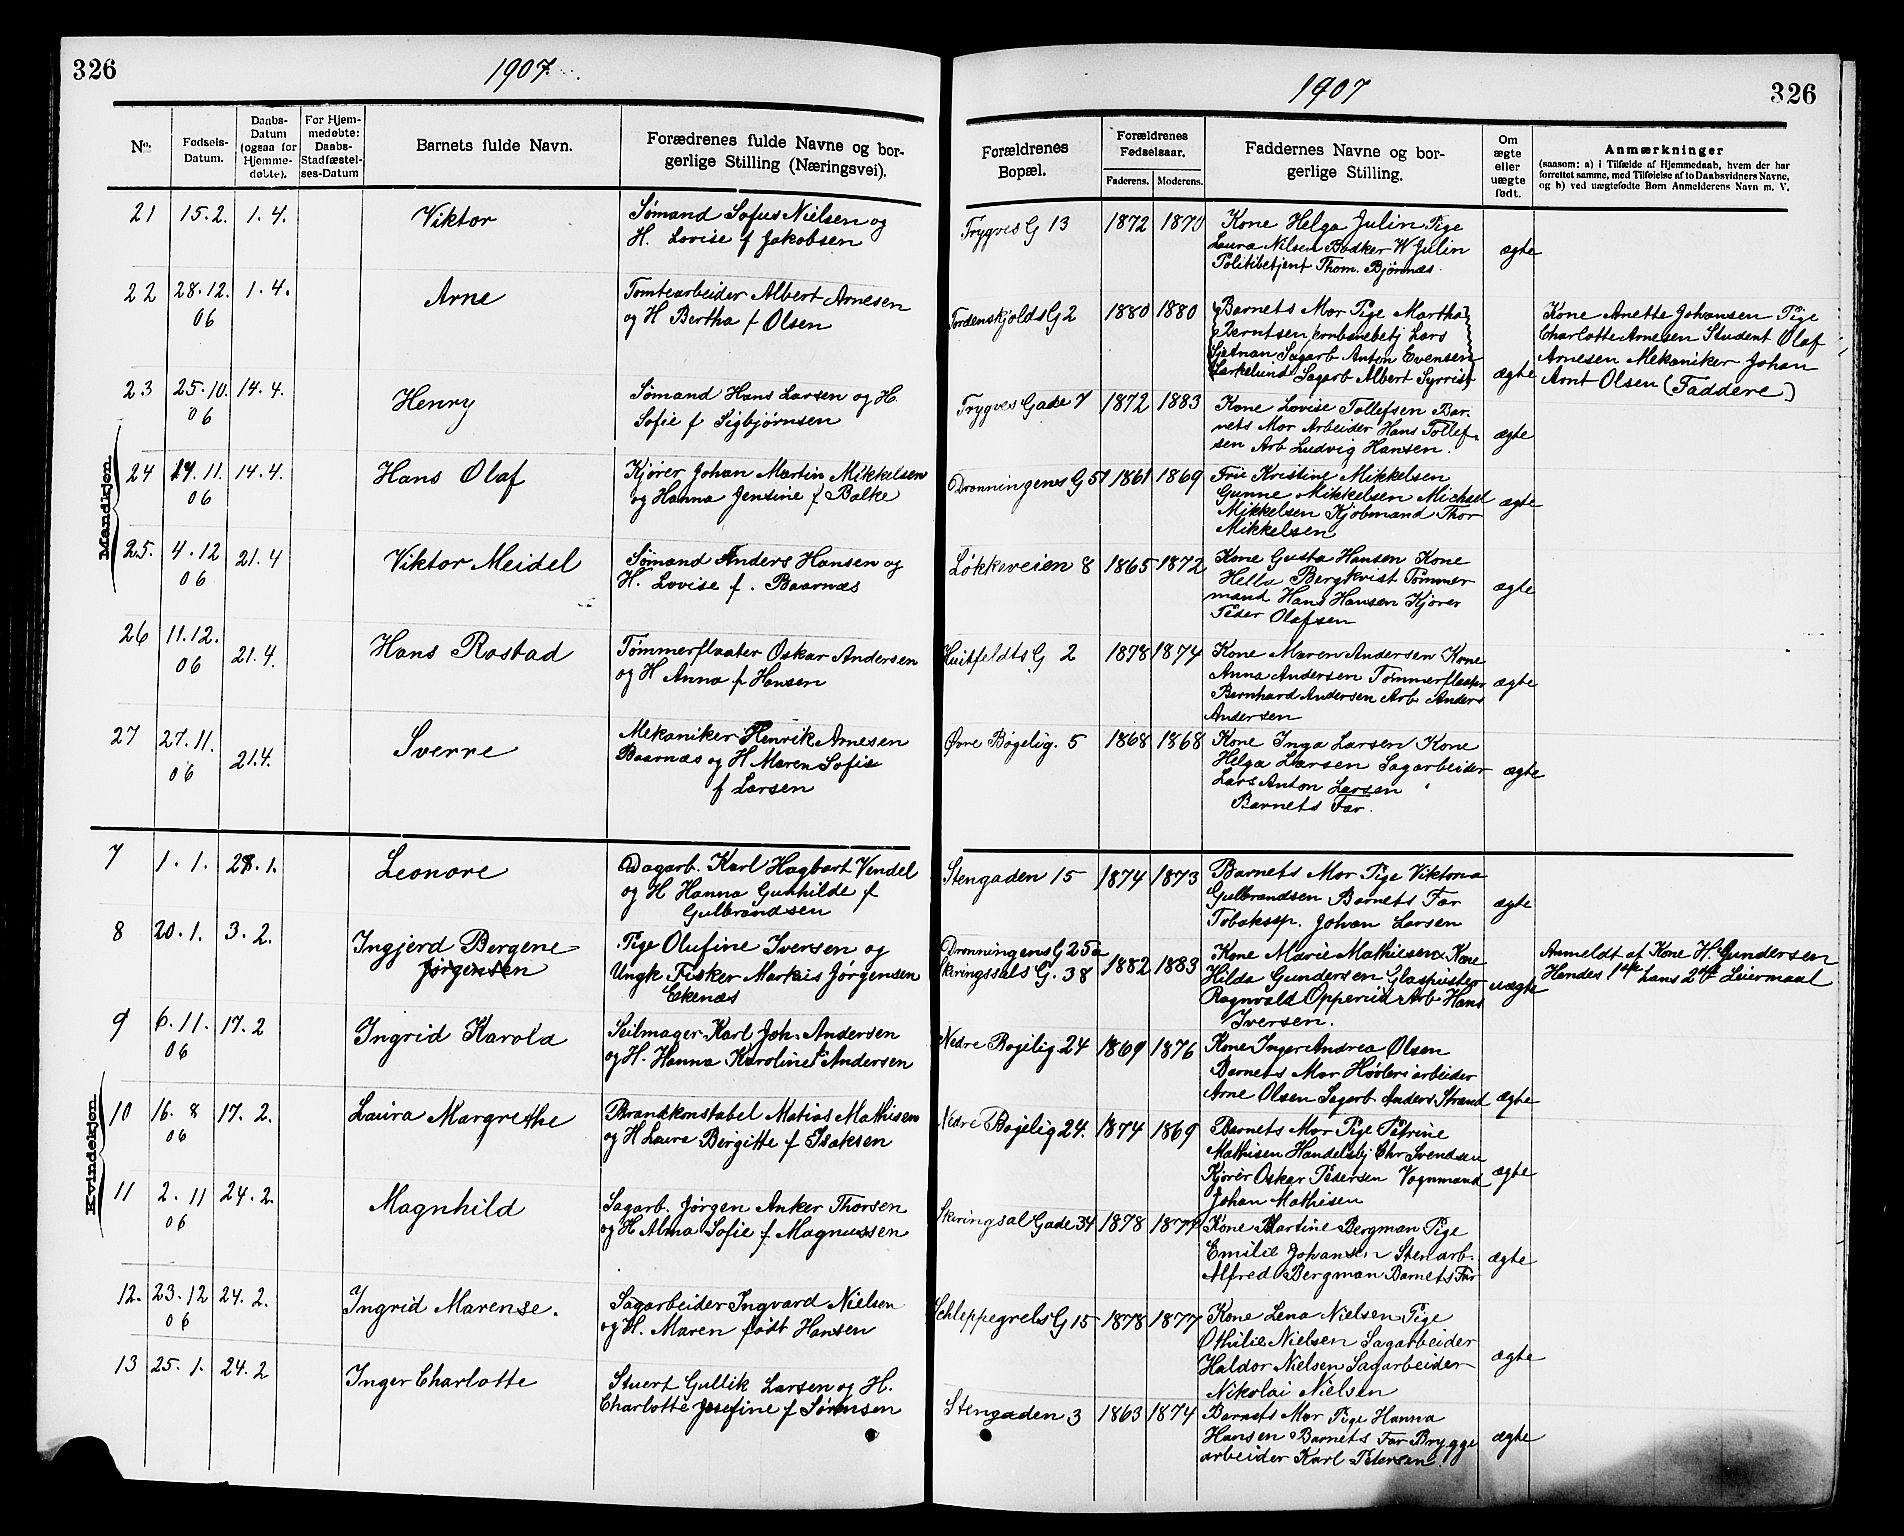 326
1907
No.
Fødsels-
Datum.
Daabs-
Datum
(ogsaa for
Hjemme-
døbte).
For Hjem-
medøbte:
Daabs-
Stadfæstel-
ses-Datum
Barnets fulde Navn.
Forædrenes fulde Navne og bor-
gerlige Stilling (Næringsvei).
Mandkjøn
21 15.2. 1.4. Viktor
Sømand Sofus Nielsen og
H. Lovise f Jakobsen
22 28.12. 1.4. Arne
06
Tomtearbeider Albert Arnesen
og H Bertha f Olsen
23 25.10. 14.4. Henry
06
Sømand Hans Larsen og H.
Sofie f Sigbjørnsen
24 14.11. 14.4. Hans Olaf
06
Kjører Johan Martin Mikkelsen
og Hanna Jensine f Balke
25. 4.12 21.4 Viktor Meidel
06
Sømand Anders Hansen og
H. Lovise f. Baarnæs
26 11.12. 21.4. Hans Rostad
06
Tømmerflaater Oskar Andersen
og H Anna f Hansen
27 27.11. 21.4. Sverre
06
Mekaniker Henrik Arnesen
Baarnæs og H Maren Sofie
f Larsen
Kvindekjøn
7 1.1. 28.1. Leonore
Dagarb. Karl Hagbart Vendel
og H Hanna Gunhilde f
Gulbrandsen
8 20.1. 3.2. Ingjerd Bergene
Jørgensen
Pige Olufine Iversen og
Ungk Fisker Markus Jørgensen
Ekenæs
9 6.11. 17.2 Ingrid Karola
06
Seilmager Karl Joh. Andersen
og H. Hanna Karoline f Andersen
10 16.8 17.2. Laura Margrethe
06
Brandkonstabel Matias Mathisen
og H Laura Bergitte f Isaksen
11 2.11 24.2. Magnhild
06
Sagarb. Jørgen Anker Thorsen
og H Alma Sofie f Magnussen
12. 23.12 24.2. Ingrid Marense.
06
Sagarbeider Ingvard Nielsen
og H. Maren født Hansen
13 25.1. 24.2 Inger Charlotte
Stuert Gullik Larsen og H.
Charlotte Josefine f Sørensen
1907
326
Forældrenes
Bopæl.
Forældrenes
Fødselsaar.
Faderens. Moderens.
Faddernes Navne og bor-
gerlige Stilling.
Om
ægte
eller
uægte
født.
Anmærkninger
(saasom: a) i Tilfælde af Hjemmedaab, hvem der har
forrettet samme, med Tilføielse af to Daabsvidners Navne,
og b) ved uægtefødte Børn Anmelderens Navn m. V.
Trygves G 13 1872 1870
Kone Helga Julin Pige
Laura Nilsen Bødker W Julin
Politibetjent Thom. Bjønnæs.
ægte
Tordenskjolds G 2 1880 1880
Barnets Mor Pige Martha
Berntsen Jernbanebetj Lars
Sætnan Sagarb Anton Evensen
Larkelund Sagarb Albert Syrrist
ægte
Kone Anette Johansen Pige
Charlotte Arnesen Student Olaf
Arnesen Mekaniker Johan
Arnt Olsen (Faddere)
Trygves Gade 7 1872 1883
Kone Lovise Tollefsen Bar-
nets Mor Arbeider Hans Tollef-
sen Arb Ludvig Hansen.
ægte
Dronningens G 51 1861 1869
Fru Kristine Mikkelsen
Gunne Mikkelsen Michael
Mikkelsen Kjøbmand Thor
Mikkelsen
ægte
Løkkeveien 8 1865 1872
Kone Gusta Hansen Kone
Hella Bergkvist Tømmer
mand Hans Hansen Kjører
Peder Olafsen
ægte
Huitfeldts G 2 1878 1874
Kone Maren Andersen Kone
Anna Andersen Tømmerflaater
Bernhard Andersen Arb Anders
Andersen
ægte
Øvre Bøgelig. 5 1868 1868
Kone Inga Larsen Kone
Helga Larsen Sagarbeider
Lars Anton Larsen
Barnets Far.
ægte
Stengaden 15 1874 1873
Barnets Mor Pige Viktoria
Gulbrandsen Barnets Far
Tobakssp. Johan Larsen
ægte
Dronningens G 25a
Skiringssals G. 38 1882 1883
Kone Marie Mathiesen Kone
Hilda Gundersen Glaspuster
Ragnvald Opperud Arb Hans
Iversen.
uægte
Anmeldt af Kone H. Gundersen
Hendes 1ste hans 2det Leiermaal
Nedre Bøgelig 24 1869 1876
Kone Inger Andrea Olsen
Barnets Mor Høvleriarbeider
Arne Olsen Sagarb Anders Strand
ægte
Nedre Bøgelig 24. 1874 1869
Barnets Mor Pige Petrine
Mathisen Handelsbj Chr Svendsen
Kjører Oskar Pedersen Vognmand
Johan Mathisen
ægte
Skiringsal Gade 34 1878 1877
Kone Martine Bergman Pige
Emilie Johansen Stenarb.
Alfred Bergman Barnets Far
ægte
Schleppegrels G 15 1878 1877
Kone Lena Nielsen Pige
Othilie Nielsen Sagarbeider
Haldor Nielsen Sagarbeider
Nikolai Nielsen
ægte
Stengaden 3 1863 1874
Barnets Mor Pige Hanna
Hansen Barnets Far Brygge
arbeider Karl Petersen.
ægte